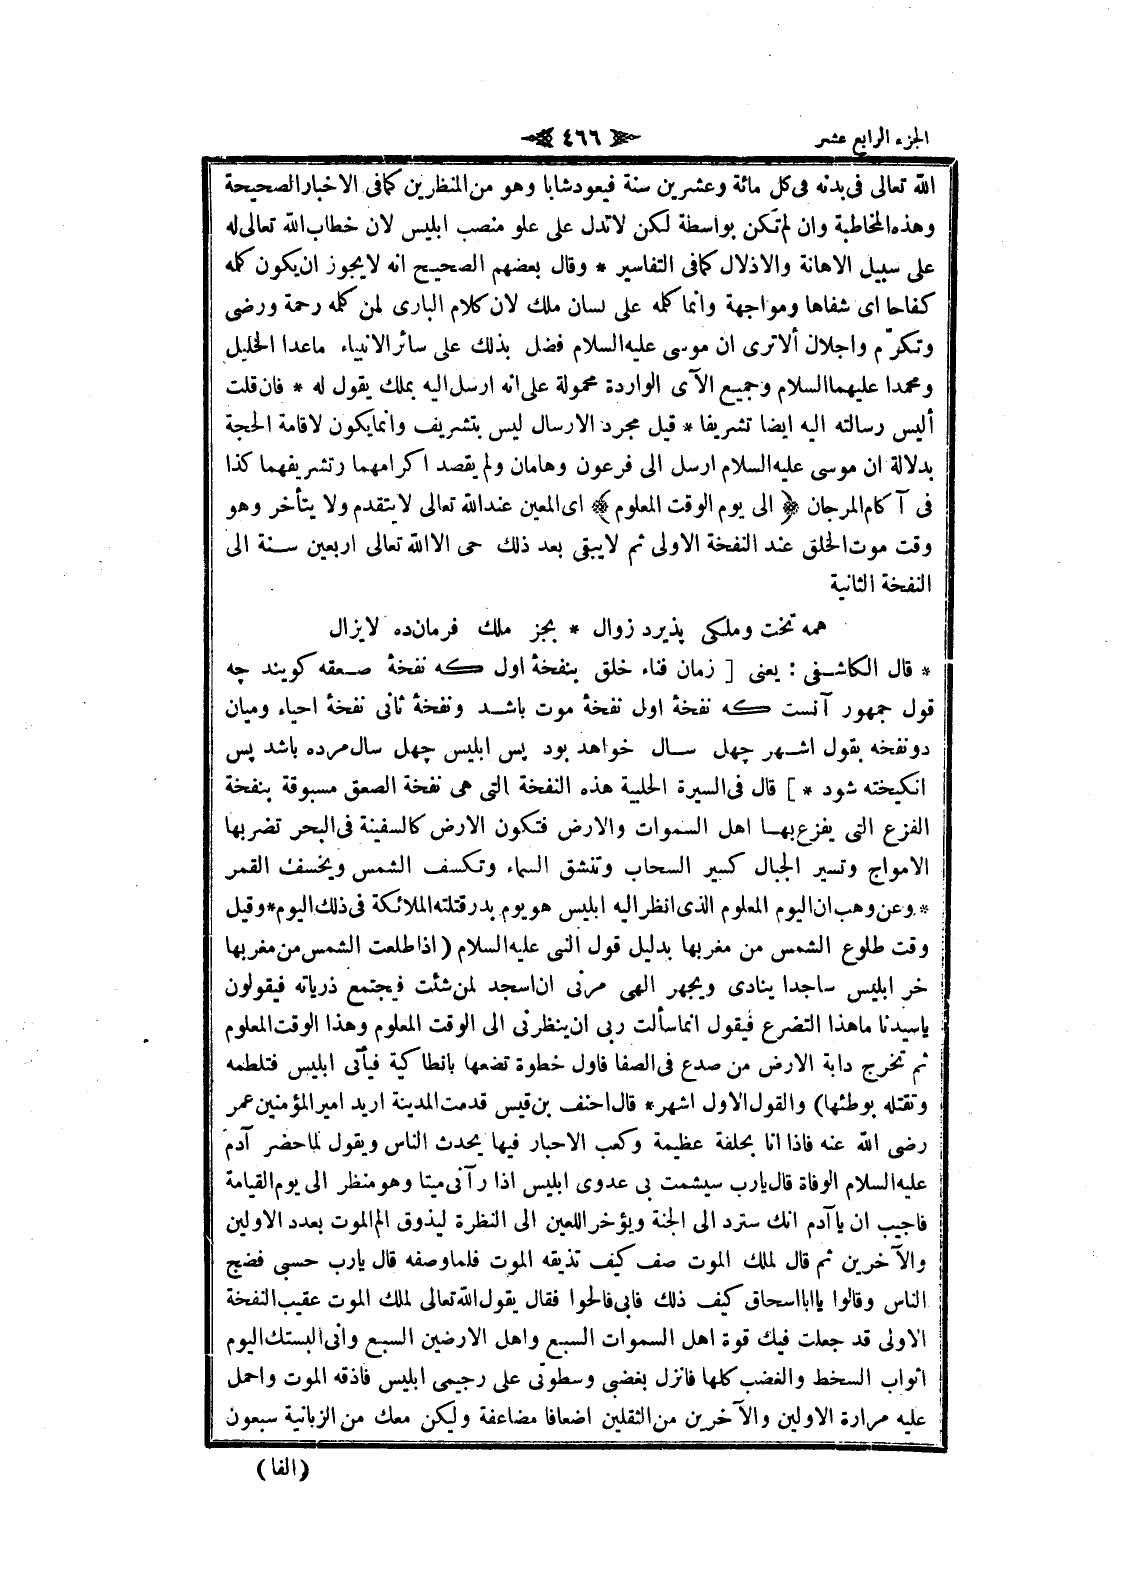 الجزء الرابع عشر
٤٦٦
الله تعالى فى بدنه فى كل مائة وعشرين سنة فيعود شابا وهو من المنظرين كما فى الاخبار الصحيحة
وهذه المخاطبة وان لم تكن بواسطة لكن لاتدل على علو منصب ابليس لان خطاب الله تعالى له
على سبيل الاهانة والاذلال كما فى التفاسير * وقال بعضهم الصحيح انه لايجوز ان يكون كلمه
كفاحا اى شفاها ومواجهة وانما كلمه على لسان ملك لان كلام البارى لمن كلمه رحمة ورضى
وتكرّم واجلال ألاترى ان موسى عليه السلام فضل بذلك على سائر الانبياء ماعدا الخليل
ومحمدا عليهما السلام وجميع الآى الواردة محمولة على انه ارسل اليه بملك يقول له * فان قلت
أليس رسالته اليه ايضا تشريفا * قيل مجرد الارسال ليس بتشريف وانما يكون لاقامة الحجة
بدلالة ان موسى عليه السلام ارسل الى فرعون وهامان ولم يقصد اكرامهما وتشريفهما كذا
فى آكام المرجان ﴿ الى يوم الوقت المعلوم ﴾ اى المعين عند الله تعالى لايتقدم ولا يتأخر وهو
وقت موت الخلق عند النفخة الاولى ثم لايبقى بعد ذلك حى الا الله تعالى اربعين سنة الى
النفخة الثانية
همه تخت وملكى پذيرد زوال * بجز ملك فرمان ده لايزال
* قال الكاشفى : يعنى [ زمان فناء خلق بنفخۀ اول كه نفخۀ صعقه كويند چه
قول جمهور آنست كه نفخۀ اول نفخۀ موت باشد ونفخۀ ثانى نفخۀ احياء وميان
دو نفخه بقول اشهر چهل سال خواهد بود پس ابليس چهل سال مرده باشد پس
انكيخته شود * ] قال فى السيرة الحلبية هذه النفخة التى هى نفخة الصعق مسبوقة بنفخة
الفزع التى يفزع بها اهل السموات والارض فتكون الارض كالسفينة فى البحر تضربها
الامواج وتسير الجبال كسير السحاب وتنشق السماء وتكسف الشمس ويخسف القمر
* وعن وهب ان اليوم المعلوم الذى انظر اليه ابليس هو يوم بدر قتلته الملائكة فى ذلك اليوم * وقيل
وقت طلوع الشمس من مغربها بدليل قول النبى عليه السلام ( اذا طلعت الشمس من مغربها
خر ابليس ساجدا ينادى ويجهر الهى مرنى ان اسجد لمن شئت فيجتمع ذرياته فيقولون
ياسيدنا ماهذا التضرع فيقول انما سألت ربى ان ينظرنى الى الوقت المعلوم وهذا الوقت المعلوم
ثم تخرج دابة الارض من صدع فى الصفا فاول خطوة تضعها بانطاكية فيأتى ابليس فتلطمه
وتقتله بوطئها) والقول الاول اشهر * قال احنف بن قيس قدمت المدينة اريد امير المؤمنين عمر
رضى الله عنه فاذا انا بحلقة عظيمة وكعب الاحبار فيها يحدث الناس ويقول لما حضر آدم
عليه السلام الوفاة قال يارب سيشمت بى عدوى ابليس اذا رآنى ميتا وهو منظر الى يوم القيامة
فاجيب ان يا آدم انك سترد الى الجنة ويؤخر اللعين الى النظرة ليذوق الم الموت بعدد الاولين
والآخرين ثم قال لملك الموت صف كيف تذيقه الموت فلما وصفه قال يارب حسبى فضج
الناس وقالوا يا ابا اسحاق كيف ذلك فابى فالحوا فقال يقول الله تعالى لملك الموت عقيب النفخة
الاولى قد جعلت فيك قوة اهل السموات السبع واهل الارضين السبع وانى البستك اليوم
اثواب السخط والغضب كلها فانزل بغضبى وسطوتى على رجيمى ابليس فاذقه الموت واحمل
عليه مرارة الاولين والآخرين من الثقلين اضعافا مضاعفة وليكن معك من الزبانية سبعون
(الفا)